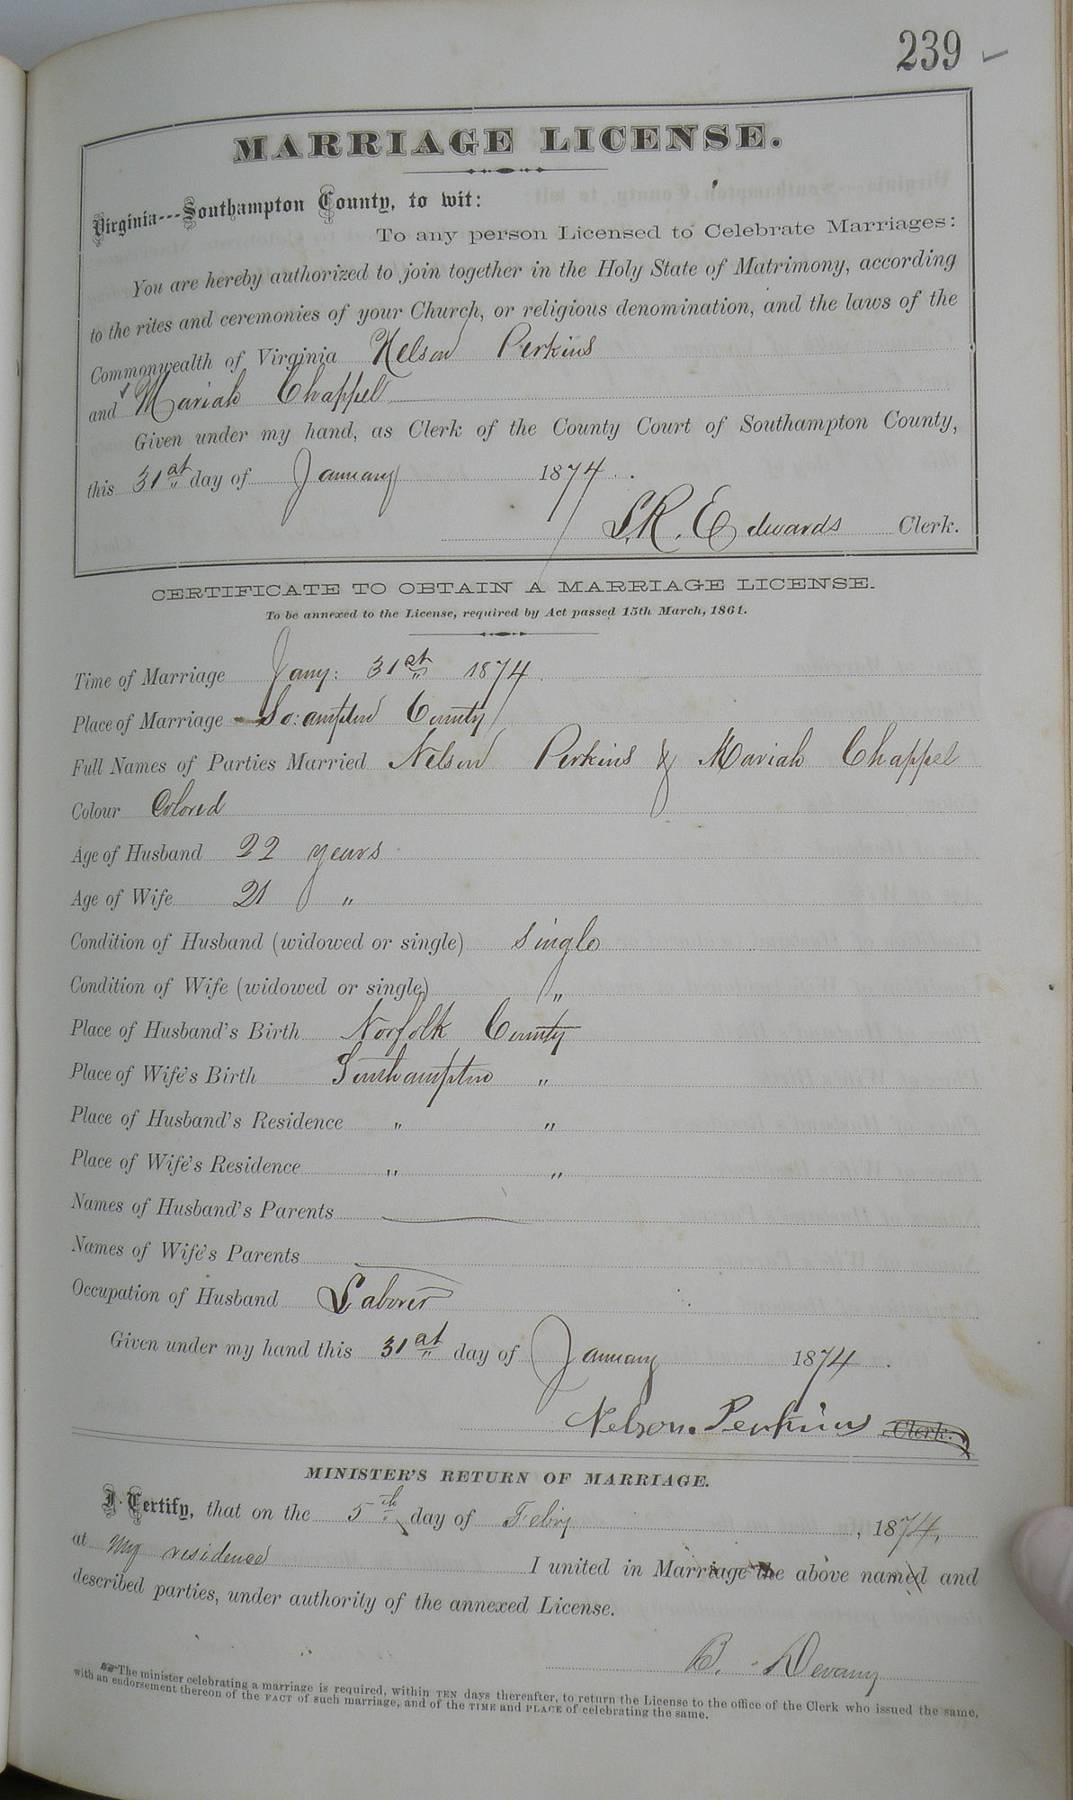 239
MARRIAGE LICENSE.
Virginia---Southampton County, to wit:
To any person Licensed to Celebrate Marriages:
You are hereby authorized to join together in the Holy State of Matrimony, according
to the rites and ceremonies of your Church, or religious denomination, and the laws of the
Commonwealth of Virginia Nelson Perkins
and Mariah Chappel
Given under my hand, as Clerk of the County Court of Southampton County,
this 31st day of January 1874.
L.R. Edwards Clerk.
CERTIFICATE TO OBTAIN A MARRIAGE LICENSE.
To be annexed to the License, required by Act passed 15th March, 1861.
Time of Marriage Jany: 31st 1874
Place of Marriage So:ampton County
Full Names of Parties Married Nelson Perkins & Mariah Chappel
Colour Colored
Age of Husband 22 years
Age of Wife 21 "
Condition of Husband (widowed or single) single
Condition of Wife (widowed or single) "
Place of Husband's Birth Norfolk County
Place of Wife's Birth Southampton "
Place of Husband's Residence " "
Place of Wife's Residence " "
Names of Husband's Parents
Names of Wife's Parents
Occupation of Husband Laborer
Given under my hand this 31st day of January 1874.
Nelson. Perkins Clerk.
MINISTER'S RETURN OF MARRIAGE.
I Certify, that on the 5th day of Feby, 1874,
at my residence I united in Marriage the above named and
described parties, under authority of the annexed License.
B. Devany
The minister celebrating a marriage is required, within TEN days thereafter, to return the License to the office of the Clerk who issued the same,
with an endorsement thereon of the FACT of such marriage, and of the TIME and PLACE of celebrating the same.